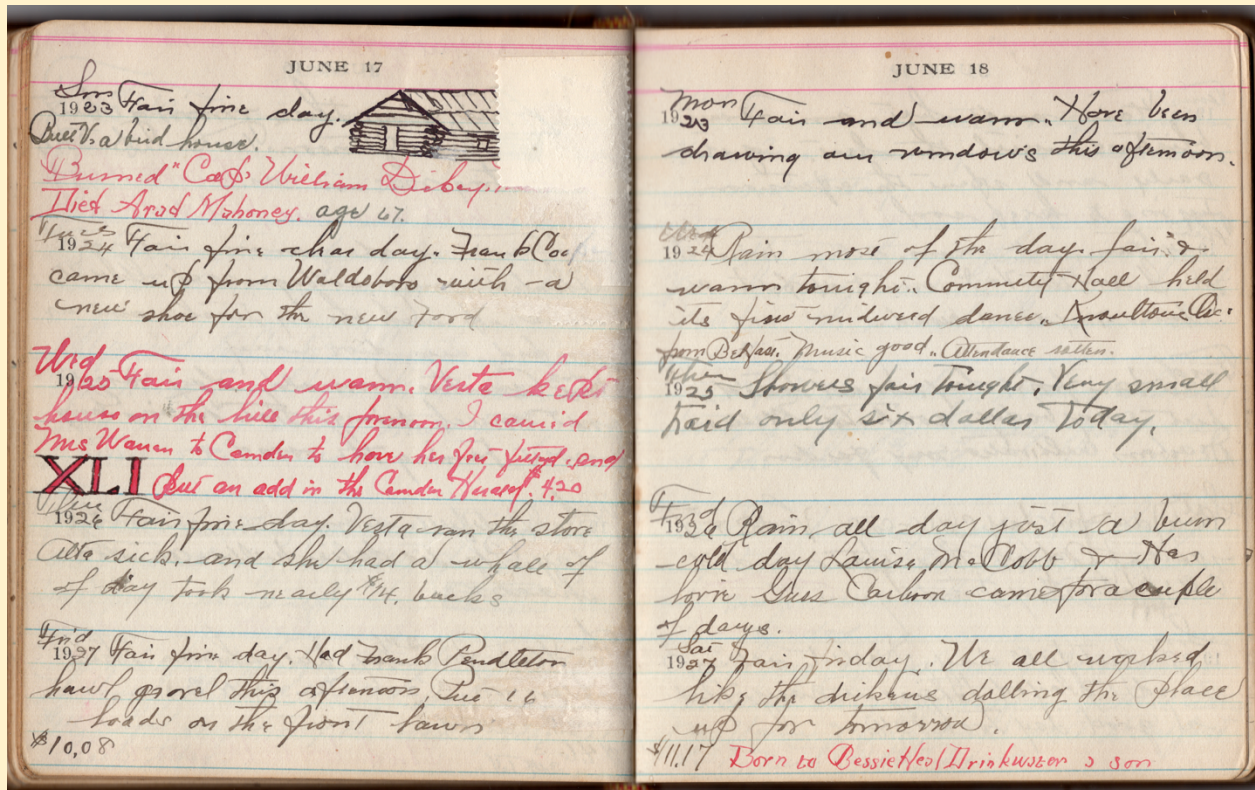 JUNE 17
Sun
1923 Fair fine day.
Built V. a bird house.
Burned "Capt William Dibey
Died Arad Mahoney. age 67.
Tues
1924 Fair fine char day. Frank Coo
came up from Waldoboro with a
new shoe for the new Ford
Wed
1925 Fair and warm. Vesta kept
house on the hill this forenoon. I carried
Mrs Warren to Camden to have her feet and
XLI Put an add in the Camden Herald. $4.20
Thur
1926 Fair fine day. Vesta ran the store
Alta sick. and she had a whale of
of day took nearly $14. bucks
Frid
1927 Fair fine day. Had Frank Pendleton
hawl gravel this afternoon. Put 16
loads on the front lawn
$10,08
JUNE 18
Mon
1923 Fair and warm. Have been
drawing our windows this afternoon.
Wed
1924 Rain most of the day. fair &
warm tonight. Community Hall held
its first midweed dance.
from Belfast. Music good. Attendance rotten.
Thur
1925 Showers fair tonight. Very small
traid only six dollar today.
Frid
1926 Rain all day just a bum
cold day Louise McCobb & Has
lovie Guss Carlson came for a cuple
of days.
Sat
1927 Fair finday. We all worked
like the dickens dolling the place
up for tomorrow.
$11.17 Born to Bessie Heal Drinkwater a son